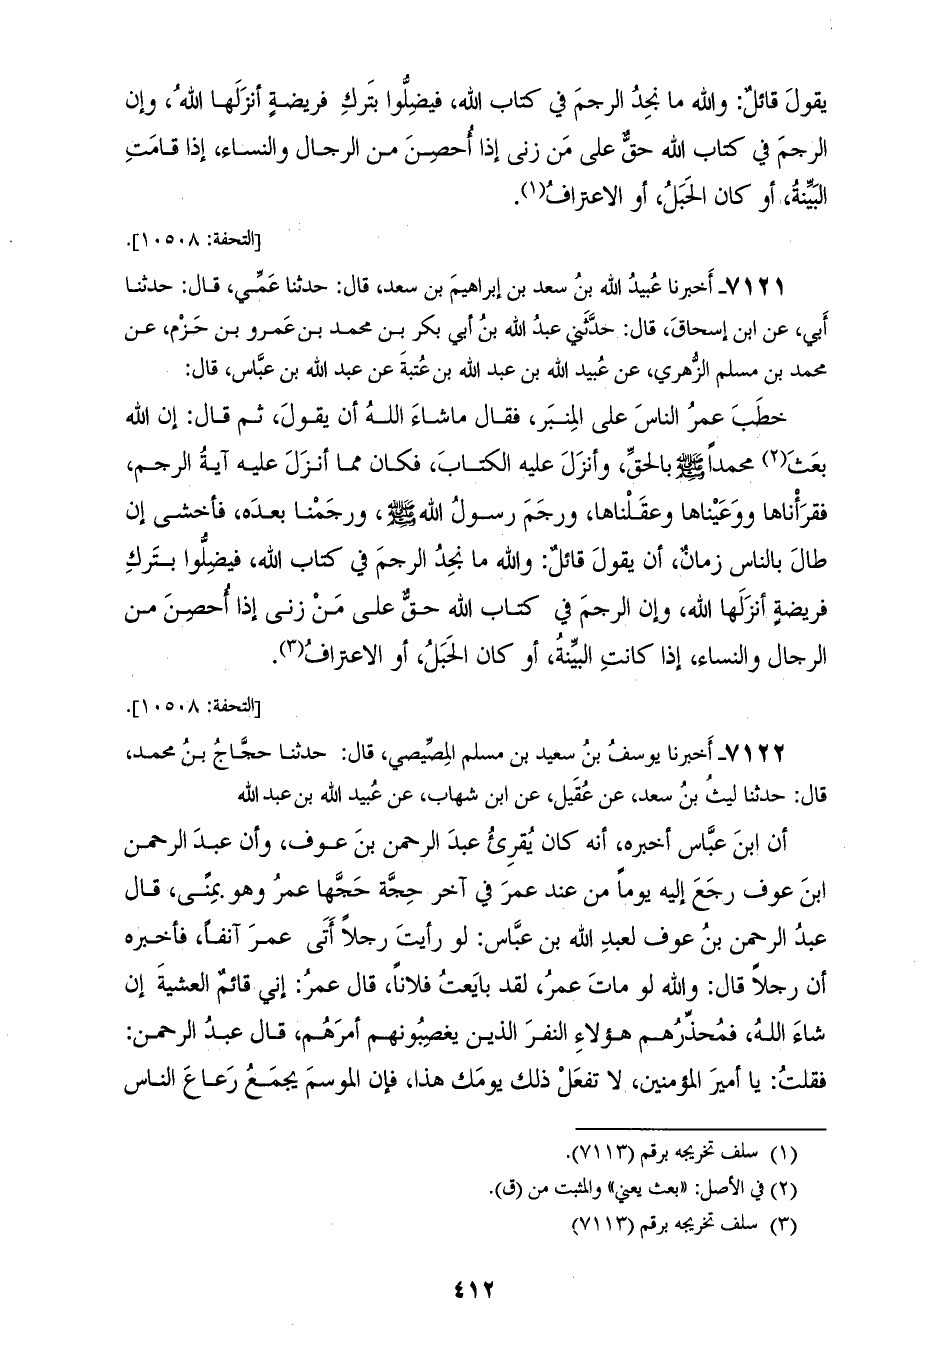 يقولَ قائلٌ: والله ما نجِدُ الرجمَ في كتاب الله، فيضِلُّوا بتَركِ فريضةٍ أنزَلَها اللهُ، وإن
الرجمَ في كتاب الله حقٌّ على مَن زنى إذا أُحصِنَ من الرجال والنساء، إذا قامَتِ
البَيِّنةُ، أو كان الحَبَلُ، أو الاعترافُ(١).
[التحفة: ١٠٥٠٨].
٧١٢١ـ أَخبرنا عُبيدُ الله بنُ سعد بن إبراهيمَ بن سعد، قال: حدثنا عَمِّي، قال: حدثنا
أَبي، عن ابن إسحاقَ، قال: حدَّثَني عبدُ الله بنُ أبي بكر بن محمد بن عَمرو بن حَزْم، عن
محمد بن مسلم الزُّهري، عن عُبيد الله بن عبد الله بن عُتبةَ عن عبد الله بن عبَّاس، قال:
خطَبَ عمرُ الناسَ على المِنبَر، فقال ماشاءَ اللهُ أن يقولَ، ثم قال: إن الله
بعَثَ(٢) محمداً ﷺ بالحقِّ، وأنزَلَ عليه الكتابَ، فكان مما أنزَلَ عليه آيةُ الرجم،
فقرَأْناها ووَعَيْناها وعقَلْناها، ورجَمَ رسولُ الله ﷺ، ورجَمْنا بعدَه، فأخشى إن
طالَ بالناس زمانٌ، أن يقولَ قائلٌ: والله ما نجِدُ الرجمَ في كتاب الله، فيضِلُّوا بتَركِ
فريضةٍ أنزَلَها الله، وإن الرجمَ في كتاب الله حقٌّ على مَنْ زنى إذا أُحصِنَ من
الرجال والنساء، إذا كانتِ البيِّنةُ، أو كان الحَبَلُ، أو الاعترافُ(٣).
[التحفة: ١٠٥٠٨].
٧١٢٢ـ أَخبرنا يوسفُ بنُ سعيد بن مسلم المِصِّيصي، قال: حدثنا حجَّاجُ بنُ محمد،
قال: حدثنا ليثُ بنُ سعد، عن عُقَيل، عن ابن شهاب، عن عُبيد الله بن عبد الله
أن ابنَ عبَّاس أخبره، أنه كان يُقرِئُ عبدَ الرحمن بنَ عوف، وأن عبدَ الرحمن
ابنَ عوف رجَعَ إليه يوماً من عند عمرَ في آخر حِجَّة حَجَّها عمرُ وهو بمِنًى، قال
عبدُ الرحمن بنُ عوف لعبدِ الله بن عبَّاس: لو رأيتَ رجلاً أَتَى عمرَ آنفاً، فأخبره
أن رجلاً قال: والله لو ماتَ عمرُ، لقد بايَعتُ فلاناً، قال عمرُ: إني قائمٌ العشيةَ إن
شاءَ اللهُ، فمُحذِّرُهم هؤلاءِ النفرَ الذين يغصِبُونهم أمرَهُم، قال عبدُ الرحمن:
فقلتُ: يا أميرَ المؤمنين، لا تفعَلْ ذلك يومَك هذا، فإن الموسمَ يجمَعُ رَعاعَ الناس
(١) سلف تخريجه برقم (٧١١٣).
(٢) في الأصل: «بعث يعني» والمثبت من (ق).
(٣) سلف تخريجه برقم (٧١١٣)
٤١٢